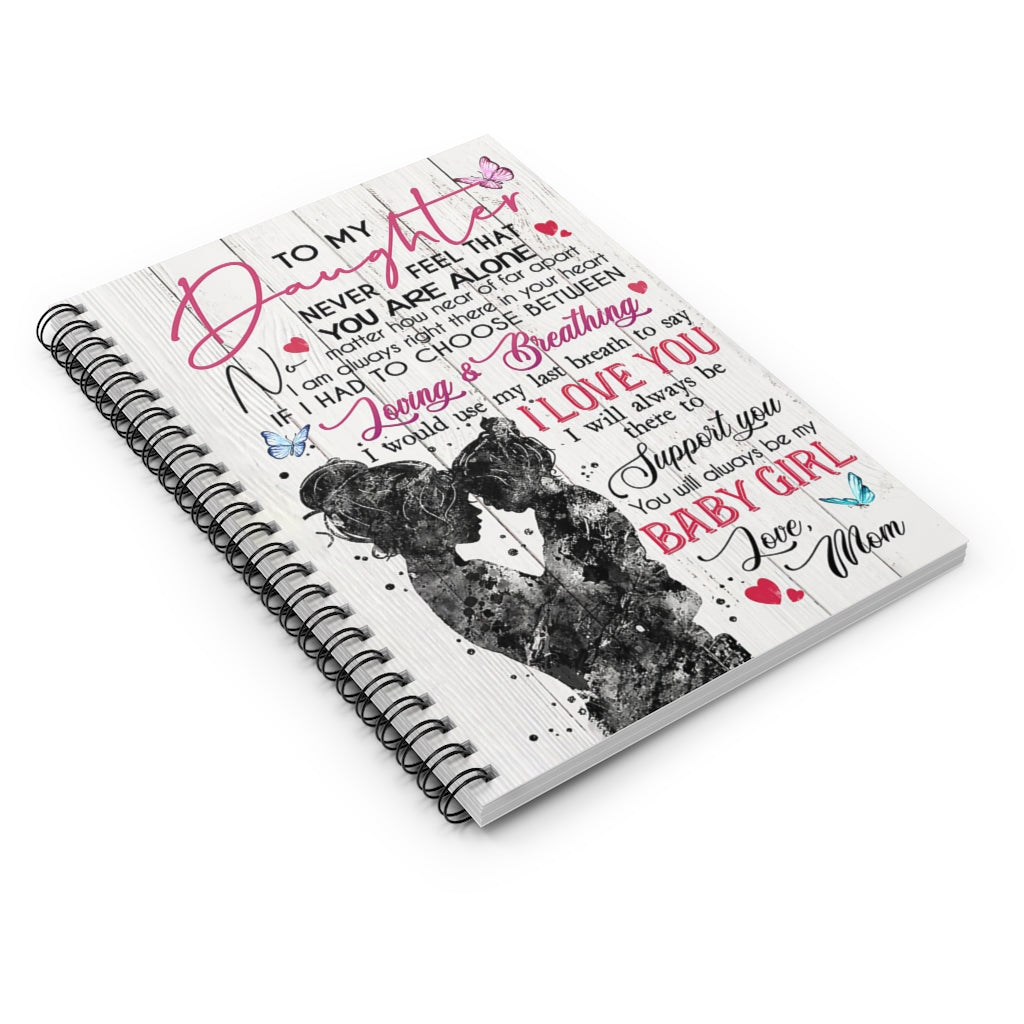 TO MY
Daughter
NEVER FEEL THAT
YOU ARE ALONE
No matter how near of far apart
I am always right there in your heart
IF I HAD TO CHOOSE BETWEEN
Loving & Breathing
I would use my last breath to say
I LOVE YOU
I will always be
there to
Support you
You will always be my
BABY GIRL
Love,
Mom